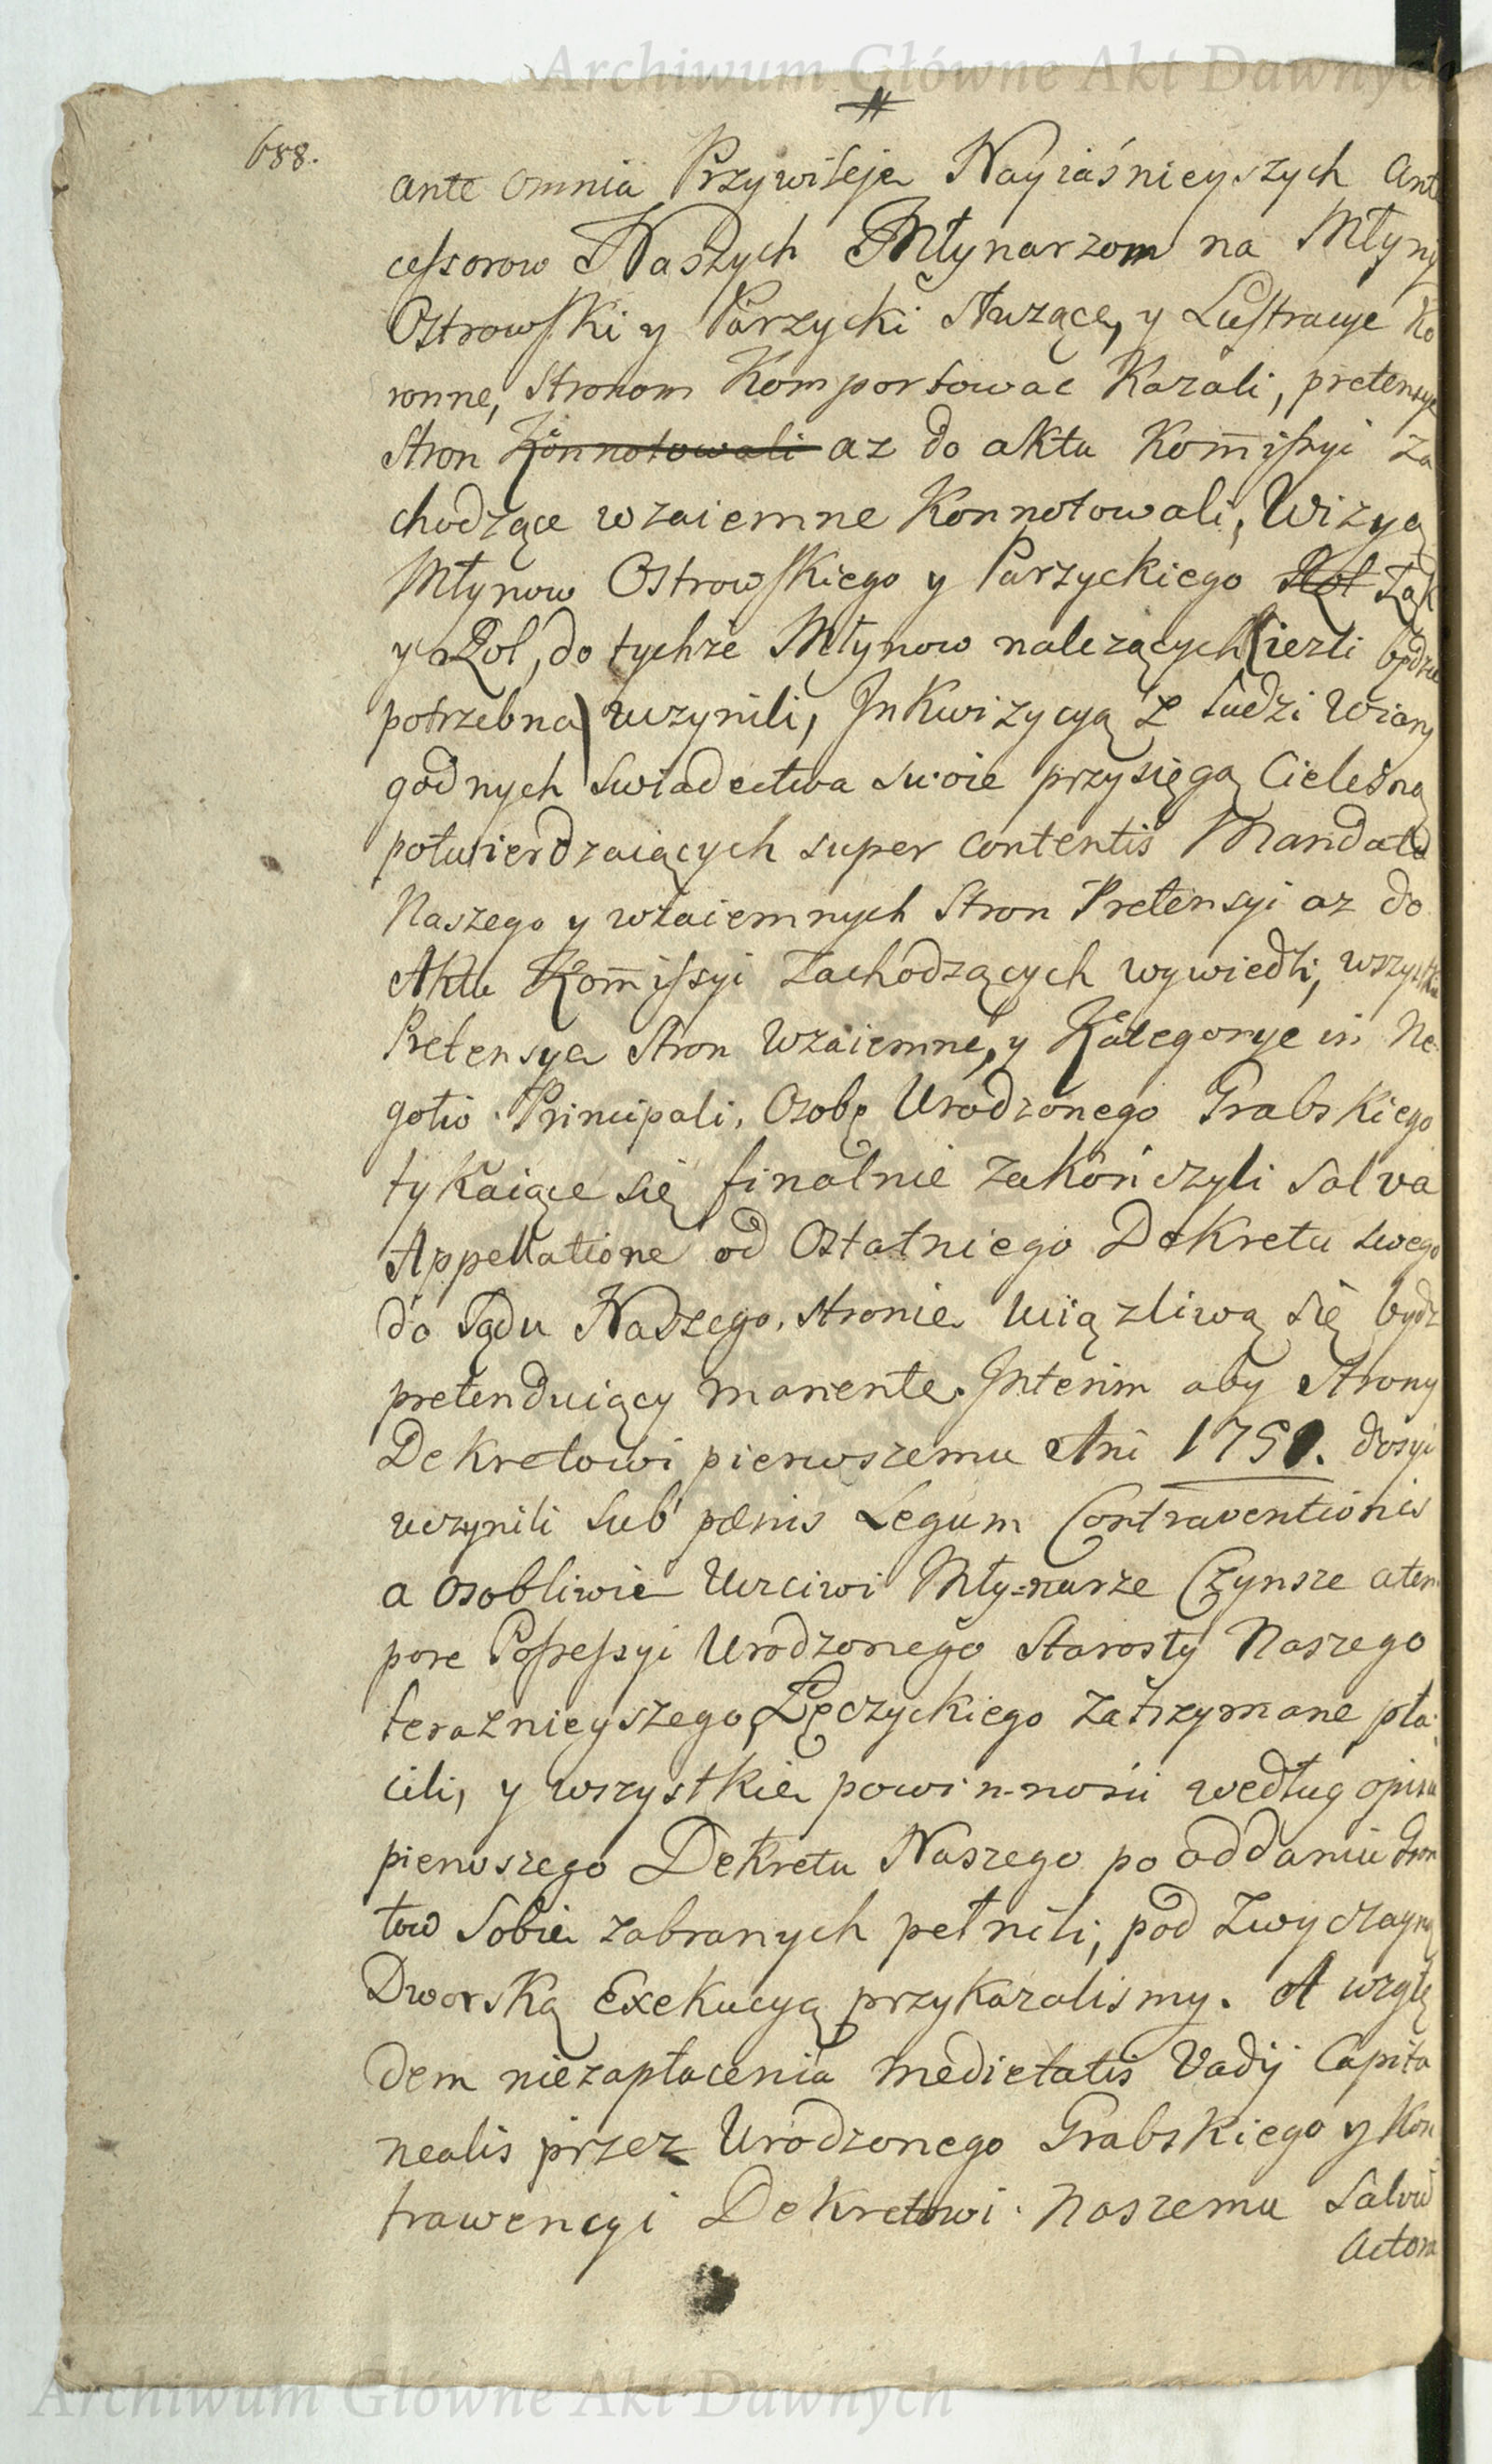 Archiwum Główne Akt Dawnych
688.
ante omnia Przywileje Nayiaśnieyszych Ant
cessorow Naszych Młynarzom na Młyny
Ostrowski y Parzycki służące, y Lustracye Ko
ronne, stronom komportować kazali, pretensye
stron konnotowali az do aktu Kom̄issyi za
chodzące wzaiemne konnotowali, Wizyą
Młynow Ostrowskiego y Parzyckiego Rol Łąk
y Rol, do tychże Młynow należących (ieżli będzie
potrzebna) uczynili, Inkwizycyą z ludzi wiary
godnych swiadectwa swoie przysięgą Cielesną
potwierdzaiących super contentis Mandatu
Naszego y wzaiemnych stron Pretensyi az do
Aktu Kom̄issyi zachodzących wywiedli, wszystkie
Pretensye stron wzaiemne, y Kategorye in Ne
gotio Principali, Osobę Urodzonego Grabskiego
tykaiące się finalnie zakończyli salva
Appellatione od Ostatniego Dekretu swego
do Sądu Naszego, stronie uciązliwą się bydz
pretenduiący manente. Interim aby strony
Dekretowi pierwszemu Ani 1751. dosyć
uczynili sub pœnis Legum Contraventionis
a osobliwie Uczciwi Mły=narze Czynsze a tem
pore Possessyi Urodzonego Starosty Naszego
teraznieyszego Łęczyckiego zatrzymane pła
cili, y wszystkie powin-ności według opisu
pierwszego Dekretu Naszego po oddaniu Grun
tow sobie zabranych pełnili, pod zwyczayną
Dworską Exekucyą przykazalismy. A wzglę
dem niezapłacenia medietatis Vadij Capita
nealis przez Urodzonego Grabskiego y kon
trawencyi Dekretowi Naszemu Salvo
Actora
Archiwum Główne Akt Dawnych